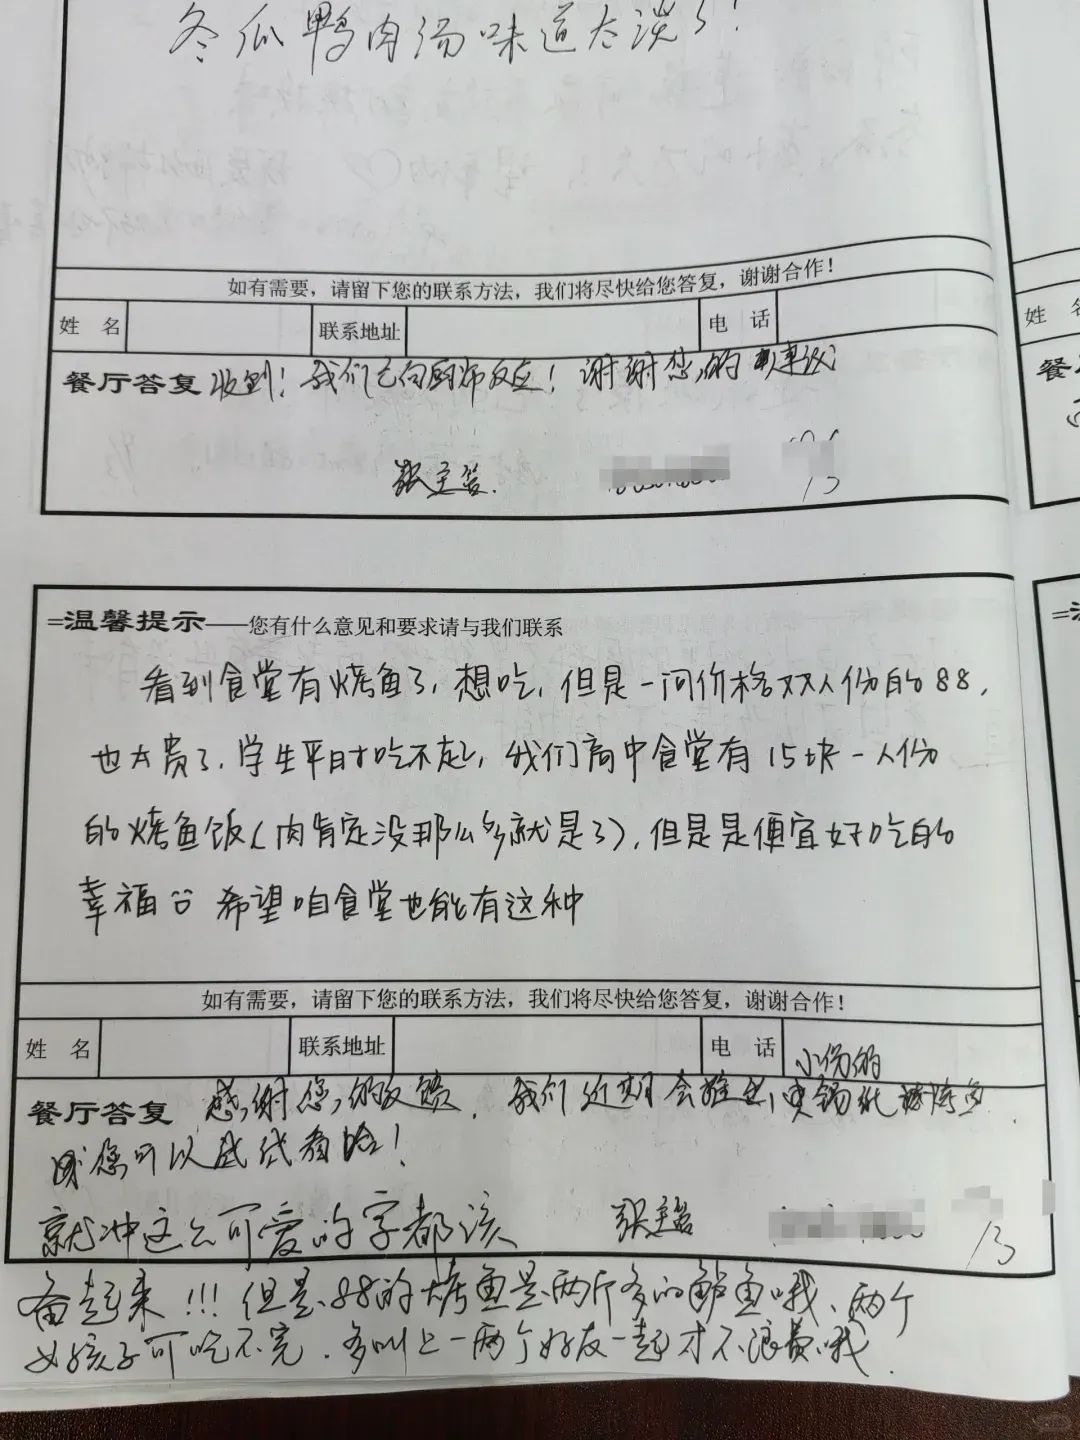 冬瓜鸭肉汤味道太淡了!
如有需要，请留下您的联系方法，我们将尽快给您答复，谢谢合作!
姓 名 联系地址 电 话
姓 名
餐厅答复 收到! 我们已向厨师反应! 谢谢您的
餐
=温馨提示——您有什么意见和要求请与我们联系
看到食堂有烤鱼了, 想吃, 但是一问价格双人份的88,
也太贵了, 学生平时吃不起, 我们高中食堂有15块一人份
的烤鱼饭(肉肯定没那么多就是了), 但是是便宜好吃的
幸福 希望咱食堂也能有这种
如有需要，请留下您的联系方法，我们将尽快给您答复，谢谢合作!
姓 名 联系地址 电 话
小份的
餐厅答复 感谢您的反馈, 我们近期会推出
您可以试试看哈!
就冲这么可爱的字都该
奋起来!!! 但是88的烤鱼是两斤多的鲈鱼哦、两个
女孩子可吃不完. 多叫上一两个好友一起才不浪费哦.